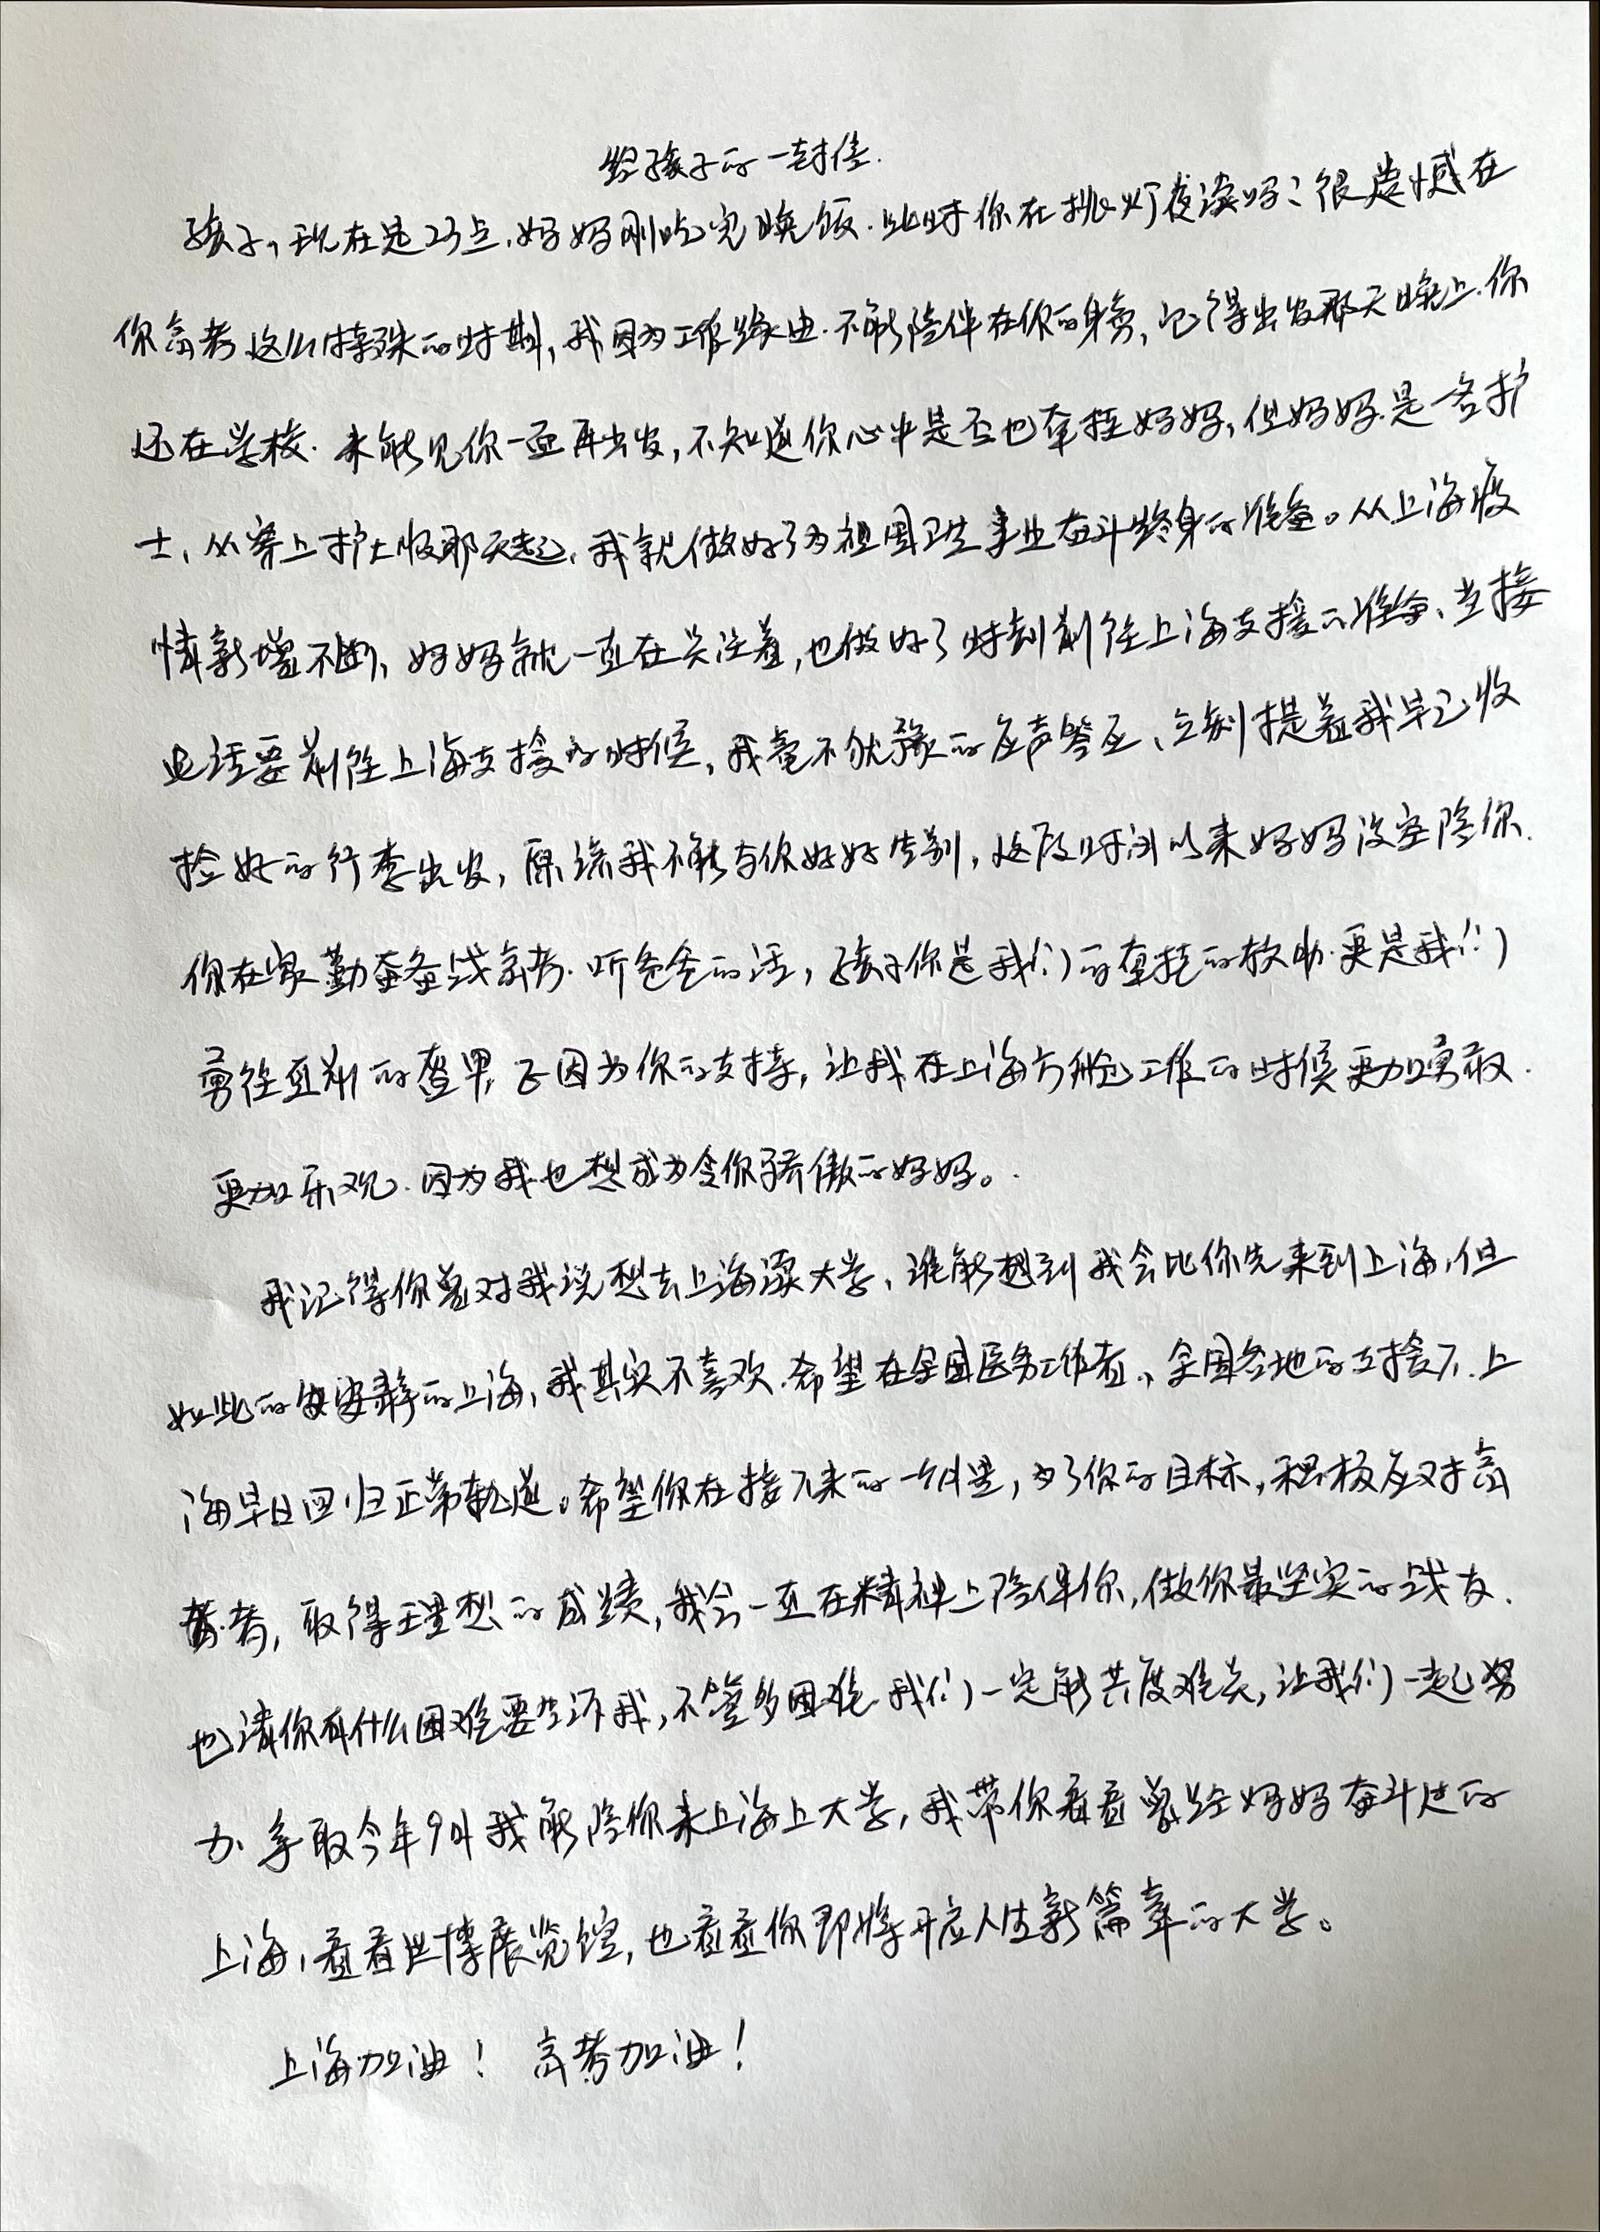 给孩子的一封信.
孩子,现在是23点,妈妈刚吃完晚饭.此时你在挑灯夜读吗?很遗憾在
你高考这么特殊的时期,我因为工作缘由.不能陪伴在你的身旁,记得出发那天晚上.你
还在学校.未能见你一面再出发,不知道你心中是否也牵挂妈妈,但妈妈.是一名护
士,从穿上护士服那天起,我就做好了为祖国卫生事业奋斗终身的准备。从上海疫
情新增不断,妈妈就一直在关注着,也做好了时刻前往上海支援的准备、当接
电话要前往上海支援的时候,我毫不犹豫的应声答应、立刻提着我早已收
捡好的行李出发,原谅我不能与你好好告别,这段时间以来妈妈没空陪你.
你在家勤奋备战高考.听爸爸的话,孩子你是我们的牵挂的软肋.更是我们
勇往直前的盔甲,正因为你的支持,让我在上海方舱工作的时候更加勇敢.
更加乐观.因为我也想成为令你骄傲的妈妈。
我记得你曾对我说想去上海读大学,谁能想到我会比你先来到上海,但
如此的安静的上海,我其实不喜欢.希望在全国医务工作者、全国各地的支援下.上
海早日回归正常轨道。希望你在接下来的一个月里,为了你的目标,积极应对高
考,取得理想的成绩,我会一直在精神上陪伴你,做你最坚实的战友.
也请你有什么困难要告诉我,不管多困难我们一定能共度难关,让我们一起努
力.争取今年9月我能陪你来上海上大学,我带你看看曾经妈妈奋斗过的
上海,看看世博展览馆,也看看你即将开启人生新篇章的大学。
上海加油! 高考加油!